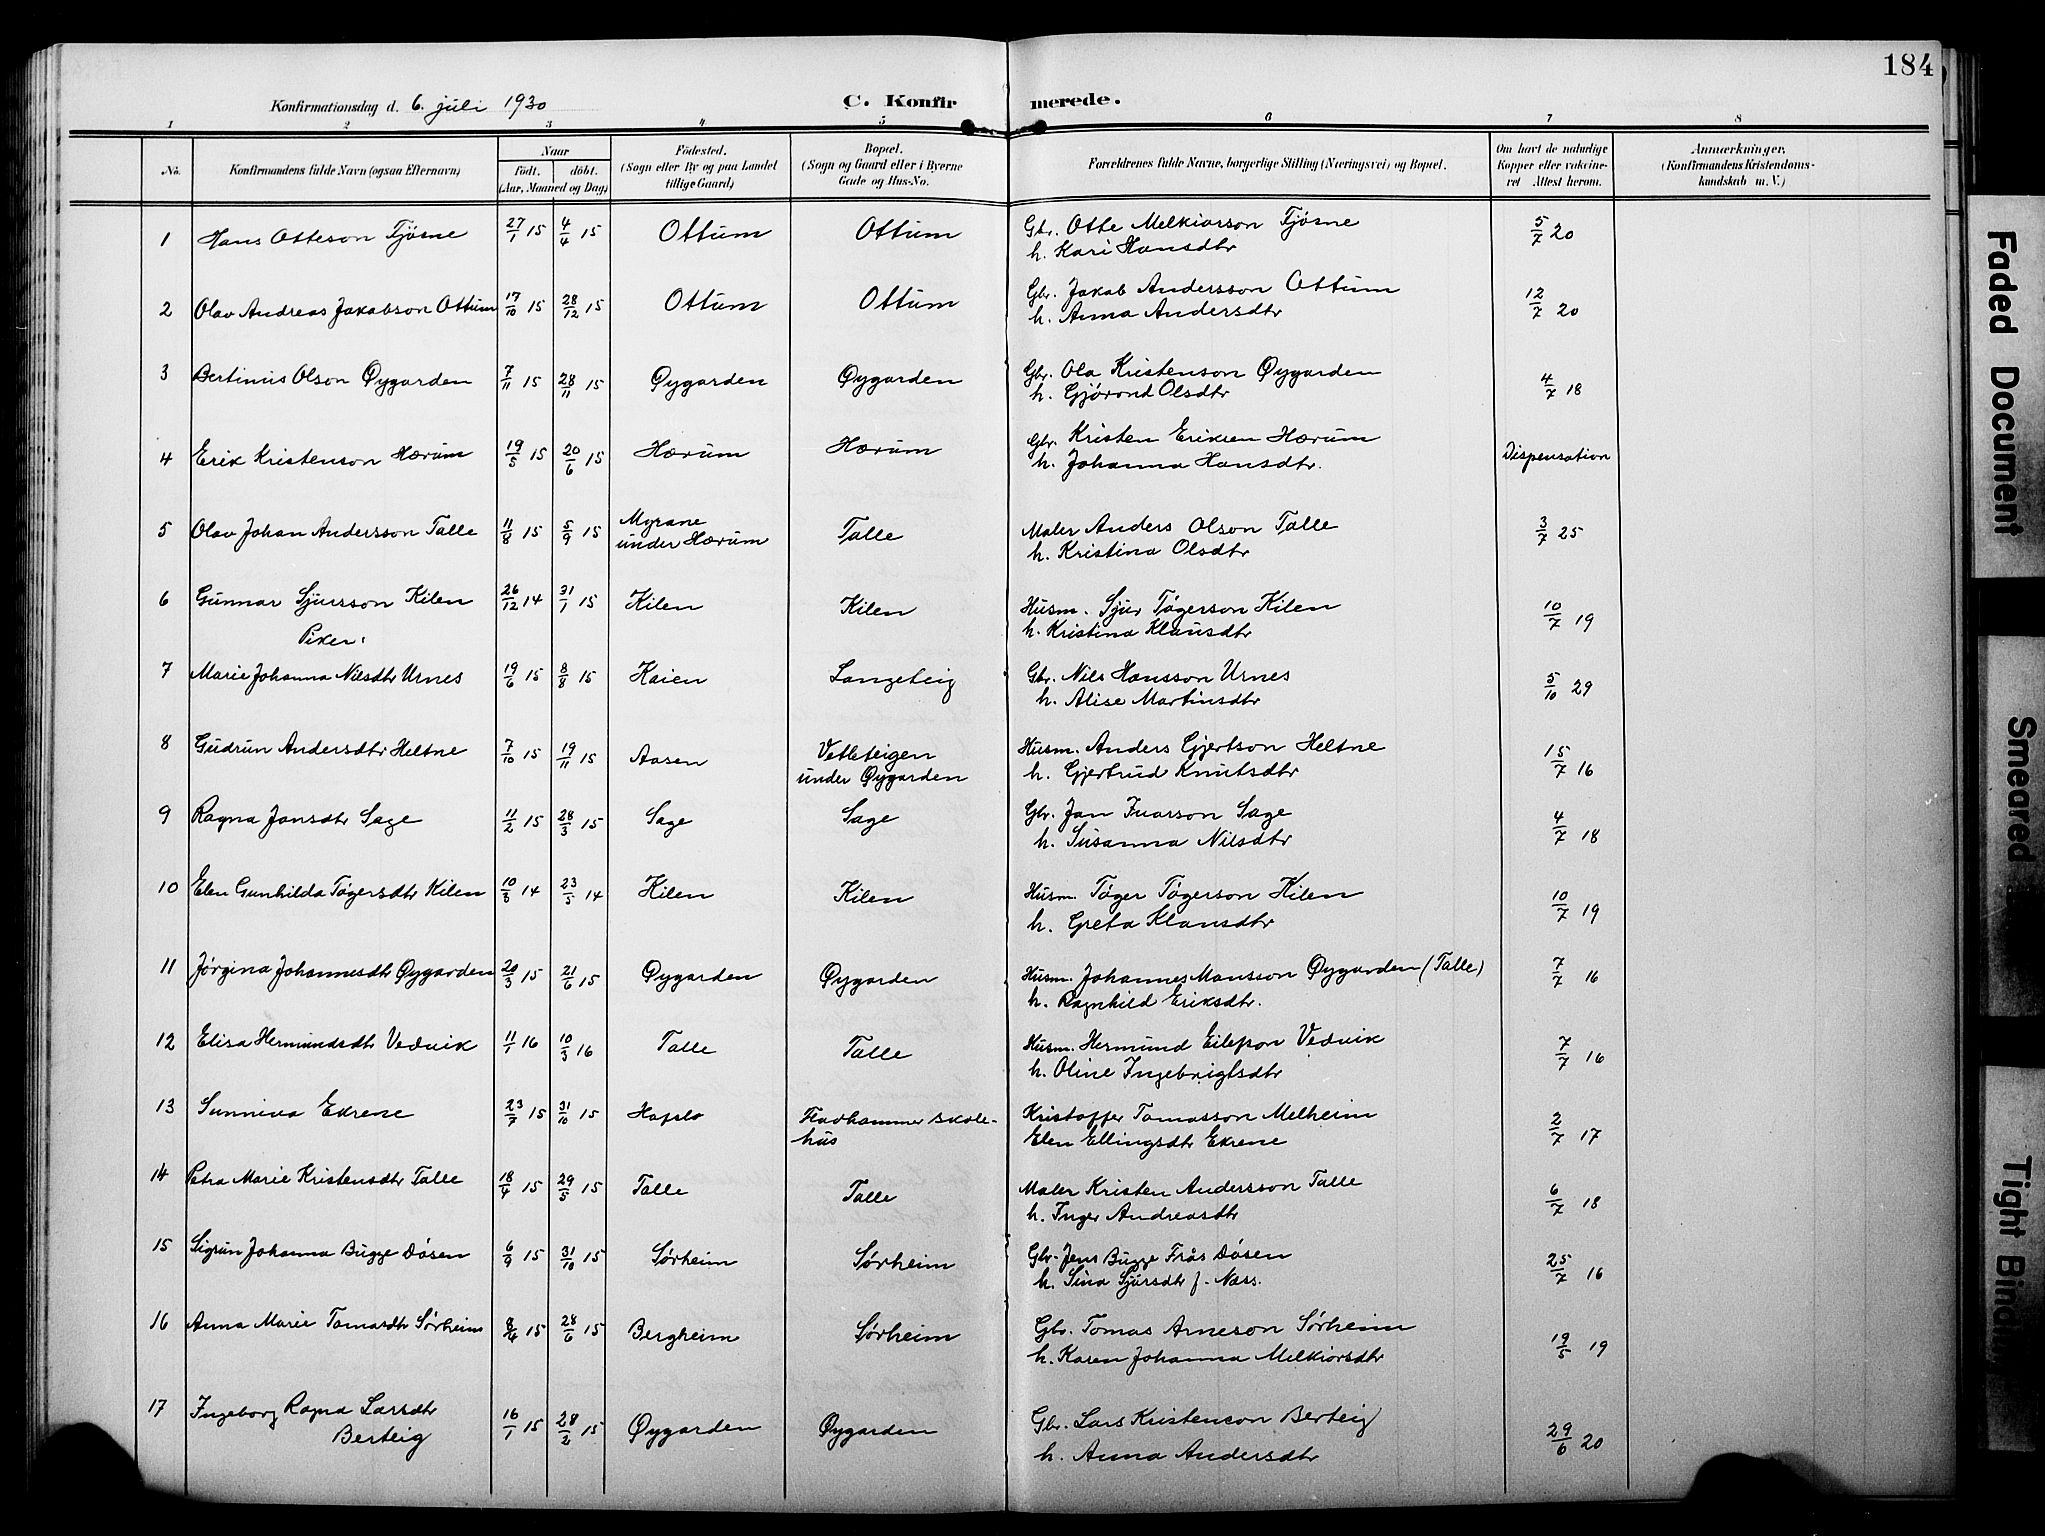 184
Konfirmationsdag d. 6. juli 1930 C. Konfirmerede.
1 2 3 4 5 6 7 8
No. Konfirmandens fulde Navn (ogsaa Efternavn) Naar Født. døbt. (Aar, Maaned og Dag) Fødested. (Sogn eller By og paa Landet tillige Gaard) Bopæl. (Sogn og Gaard eller i Byerne Gade og Hus-No. Forældrenes fulde Navne, borgerlige Stilling (Næringsvei) og Bopæl. Om havt de naturlige Kopper eller vaccineret Attest herom. Anmærkninger. (Konfirmandens Kristendomskundskab m. V.)
1 Hans Otteson Fjøsne 27/1 15 4/4 15 Ottum Ottum Gbr. Otte Melkiorson Fjøsne 5/7 20
h. Kari Hansdtr
2 Olav Andreas Jakobson Ottum 17/10 15 28/12 15 Ottum Ottum Gbr. Jakob Andersson Ottum 12/7 20
h. Anna Andersdtr
3 Bertinus Olson Øygarden 7/11 15 28/11 15 Øygarden Øygarden Gbr. Ola Kristenson Øygarden 4/7 18
h. Gjørond Olsdtr
4 Erik Kristenson Hærum 19/5 15 20/6 15 Hærum Hærum Gbr. Kristen Eriksen Hærum Dispensation
h. Johanna Hansdtr.
5 Olav Johan Andersson Talle 11/8 15 5/9 15 Myrane under Hærum Talle Maler Anders Olson Talle 3/7 25
h. Kristina Olsdtr
6 Gunnar Sjursson Kilen 26/12 14 31/1 15 Kilen Kilen Husm. Sjur Tøgerson Kilen 10/7 19
h. Kristina Klausdtr
Piker:
7 Marie Johanna Nilsdtr Urnes 19/6 15 8/8 15 Kaien Langeteig Gbr. Nils Hansson Urnes 5/10 29
h. Alise Martinsdtr
8 Gudrun Andersdtr Heltne 7/10 15 19/11 15 Aasen Vetleteigen under Øygarden Husm. Anders Gjertson Heltne 15/7 16
h. Gjertrud Knutsdtr
9 Ragna Jansdtr Sage 11/2 15 28/3 15 Sage Sage Gbr. Jan Ivarson Sage 4/7 18
h. Susanna Nilsdtr
10 Elen Gunhilda Tøgersdtr Kilen 14 23/5 14 Kilen Kilen Husm. Tøger Tøgerson Kilen 10/7 19
h. Greta Klausdtr
11 Jørgina Johannesdtr Øygarden 20/3 15 21/6 15 Øygarden Øygarden Husm. Johannes Monsson Øygarden (Talle) 7/7 16
h. Ragnhild Eriksdtr.
12 Elisa Hermundsdtr Vedvik 11/1 16 10/3 16 Talle Talle Husm. Hermund Eilefson Vedvik 7/7 16
h. Oline Ingebrigtsdtr
13 Sunniva Ekrene 23/7 15 31/10 15 Hafslo Fladhammer skolehus Kristoffer Tomasson Melheim 2/7 17
Elen Ellingsdtr Ekrene
14 Petra Marie Kristensdtr Talle 18/4 15 29/5 15 Talle Talle Maler Kristen Andersson Talle 6/7 18
h. Inger Andreasdtr
15 Sigrun Johanna Bugge Døsen 6/9 15 31/10 15 Sørheim Sørheim Gbr. Jens Bugge Frås Døsen 25/7 16
h. Sina Sjursdtr f. Næss.
16 Anna Marie Tomasdtr Sørheim 15 28/6 15 Bergheim Sørheim Gbr. Tomas Arneson Sørheim 19/5 19
h. Karen Johanna Melkiorsdtr
17 Ingeborg Ragna Larsdtr Berteig 16/1 15 28/2 15 Øygarden Øygarden Gbr. Lars Kristenson Berteig 29/6 20
h. Anna Andersdtr
Faded Document
Smeared
Tight Binding